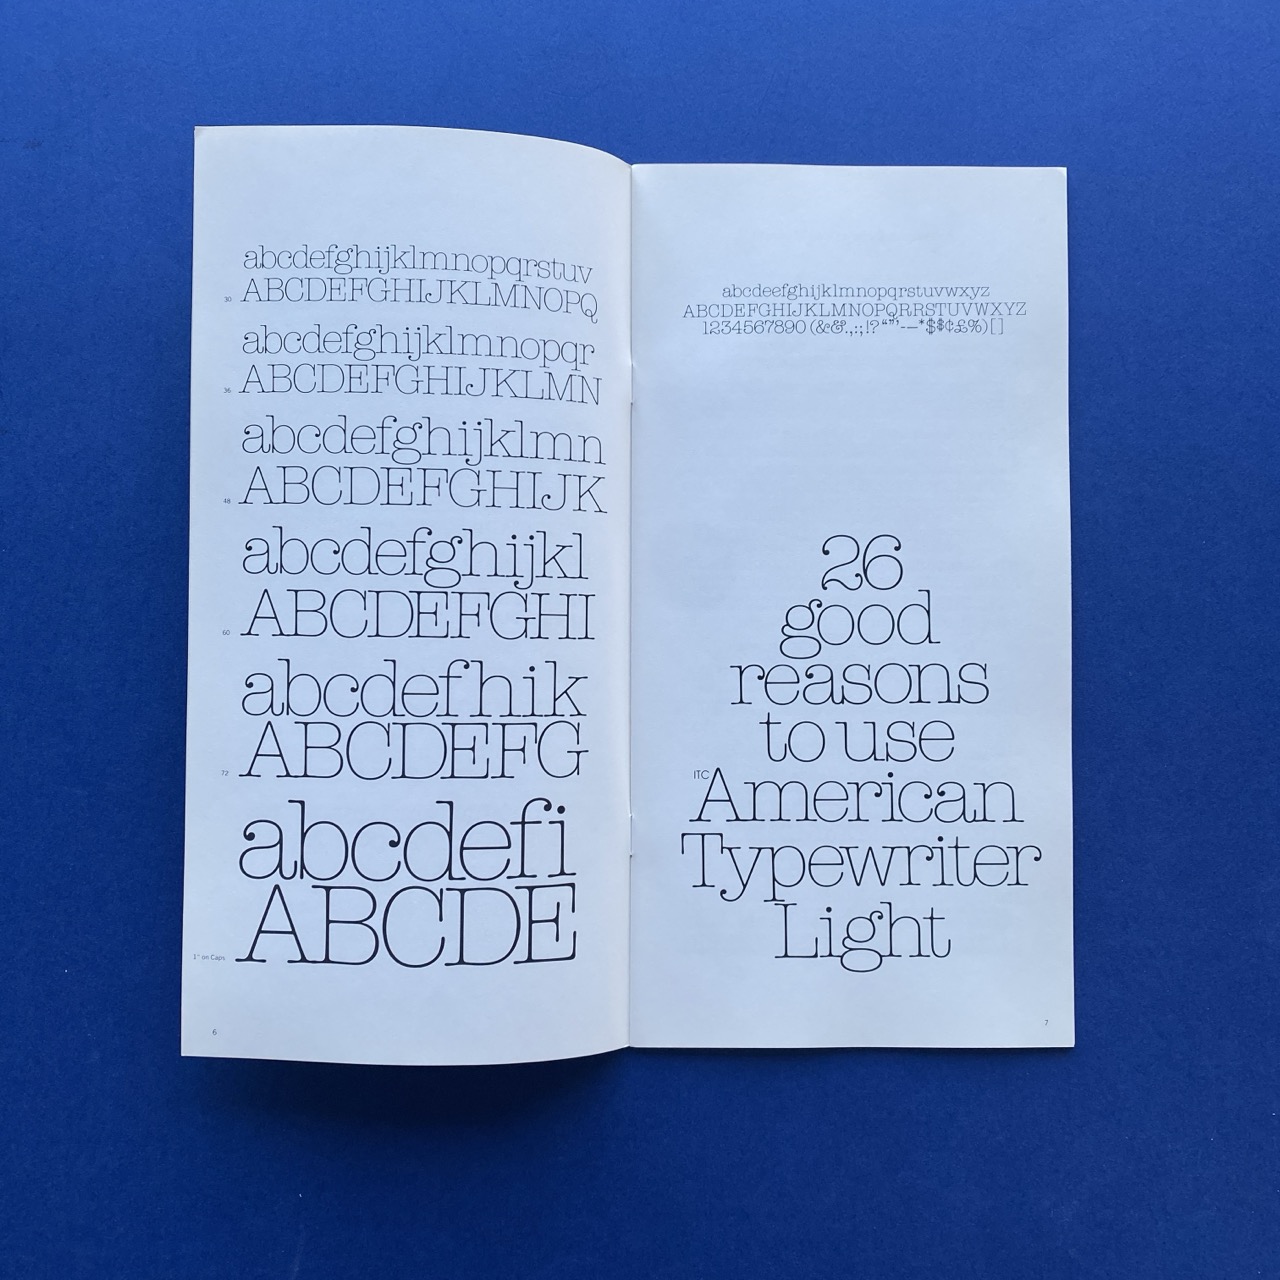 abcdefghijklmnopqrstuv
30 ABCDEFGHIJKLMNOPQ
abcdefghijklmnopqr
36 ABCDEFGHIJKLMN
abcdefghijklmn
48 ABCDEFGHIJK
abcdefghijkl
60 ABCDEFGHI
abcdefhik
72 ABCDEFG
abcdefi
1" on Caps ABCDE
6
abcdeefghijklmnopqrstuvwxyz
ABCDEFGHIJKLMNOPQRRSTUVWXYZ
1234567890 (&&.,:;!?“”’--–*$$¢£%)[]
26
good
reasons
to use
ITC American
Typewriter
Light
7